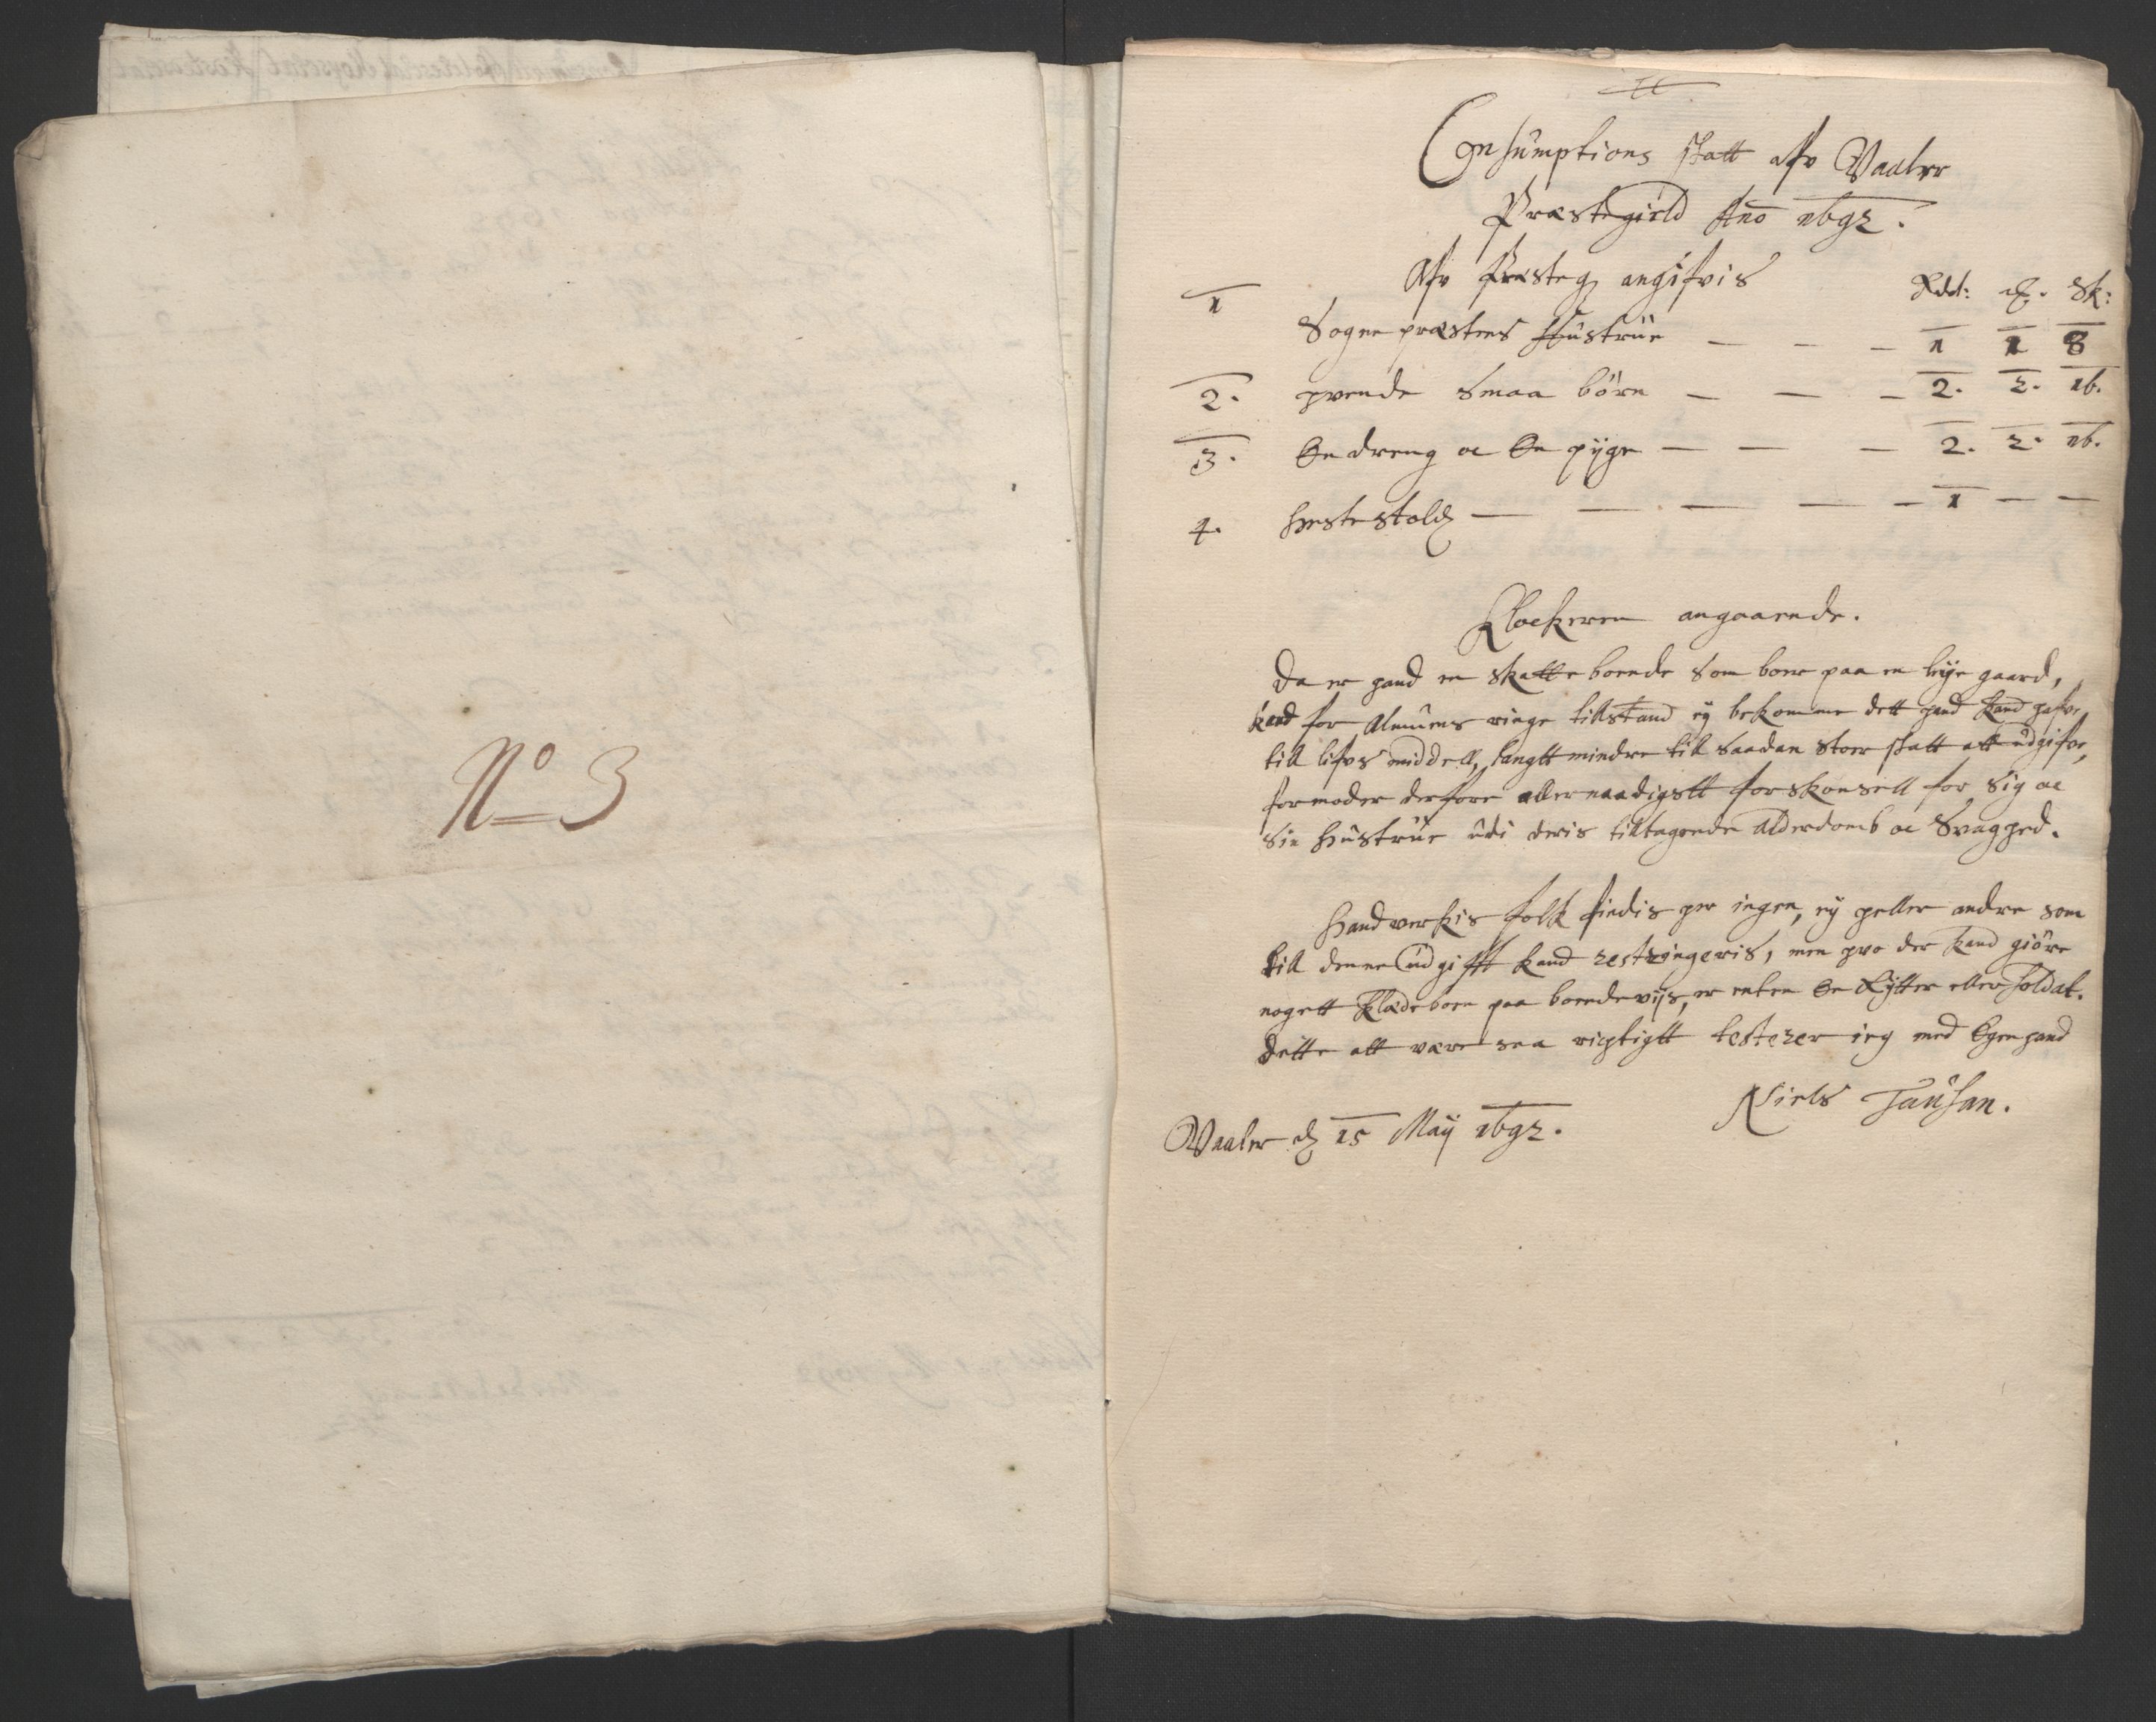 No 3
Consumptions skatt afv Vaaler
Præstegield Ano 1692.
Afv Præsteg angifvis
Rdl: Sk:
1 Sogne præstens Hustrüe — — — 1 1 8
2. hrende Smaa börn — — — 2. 2. 16.
3. En dreng oc En pijge — — — 2. 2. 16.
4. heste skatt — — — — — 1 — —
Klockeren angaaende.
Da er hand en skatte boende Som boer paa en leije gaard,
kand for Almuens ringe tillstand ej bekomme dett hand kand hafve
till lifvs middell, langtt mindre till saadan stoer skatt att udgifve,
formoder derfore allernaadigstt forskonsell for Sig oc
Sin Hustrüe udi deris tilltagende alderdomb oc Svaghed.
Handverkis folk findis her ingen, ej heller andre som
till denne udgifft kand restringeris, men hvo der kand giöre
nogett klædeboen paa boendevijs, er enten En Rytter eller Soldat.
Dette att være saa rigtigtt testerer ieg med Egen hand
Niels Tausan.
Vaaler d 15 Maij 1692.